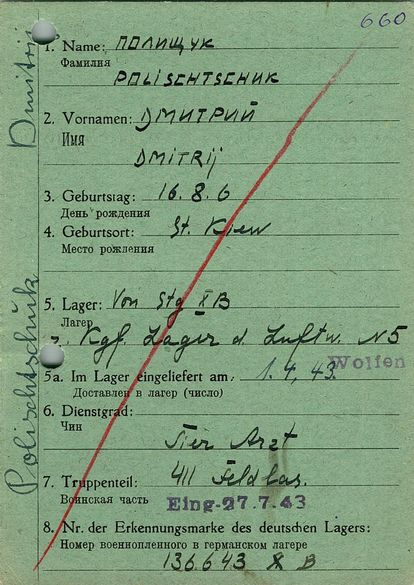 660
1. Name: ПОЛИЩУК
Фамилия
POLISCHTSCHUK
2. Vornamen: ДМИТРИЙ
Имя
DMITRIJ
3. Geburtstag: 16.8.6
День рождения
4. Geburtsort: St. Kiew
Место рождения
5. Lager: Von Stg X B
Лагер
Kgf. Lager d. Luftw. N5
Wolfen
5a. Im Lager eingeliefert am: 1.4.43.
Доставлен в лагер (число)
6. Dienstgrad:
Чин
Tier Arzt
7. Truppenteil: 411 Feldlas.
Воинская часть Eing-27.7.43
8. Nr. der Erkennungsmarke des deutschen Lagers:
Номер военнопленного в германском лагере
136643 X B
Polischtschuk Dmitrij